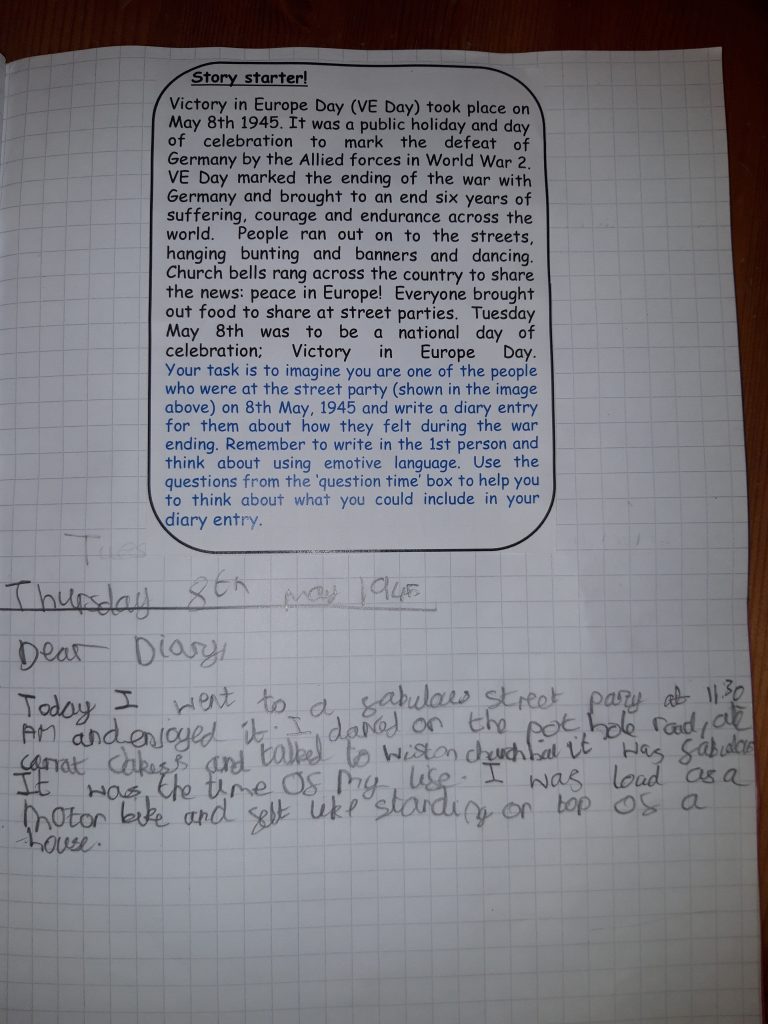 Story starter!
Victory in Europe Day (VE Day) took place on
May 8th 1945. It was a public holiday and day
of celebration to mark the defeat of
Germany by the Allied forces in World War 2.
VE Day marked the ending of the war with
Germany and brought to an end six years of
suffering, courage and endurance across the
world. People ran out on to the streets,
hanging bunting and banners and dancing.
Church bells rang across the country to share
the news: peace in Europe! Everyone brought
out food to share at street parties. Tuesday
May 8th was to be a national day of
celebration; Victory in Europe Day.
Your task is to imagine you are one of the people
who were at the street party (shown in the image
above) on 8th May, 1945 and write a diary entry
for them about how they felt during the war
ending. Remember to write in the 1st person and
think about using emotive language. Use the
questions from the 'question time' box to help you
to think about what you could include in your
diary entry.
Tues
Thursday 8th may 1945
Dear Diary,
Today I went to a fabulous street pary at 11:30
AM and enjoyed it. I danced on the pot hole road, ate
carrat cakes and talked to wiston churchhal it was fabulous
It was the time of my life. I was loud as a
motor bike and felt like standing on top of a
house.